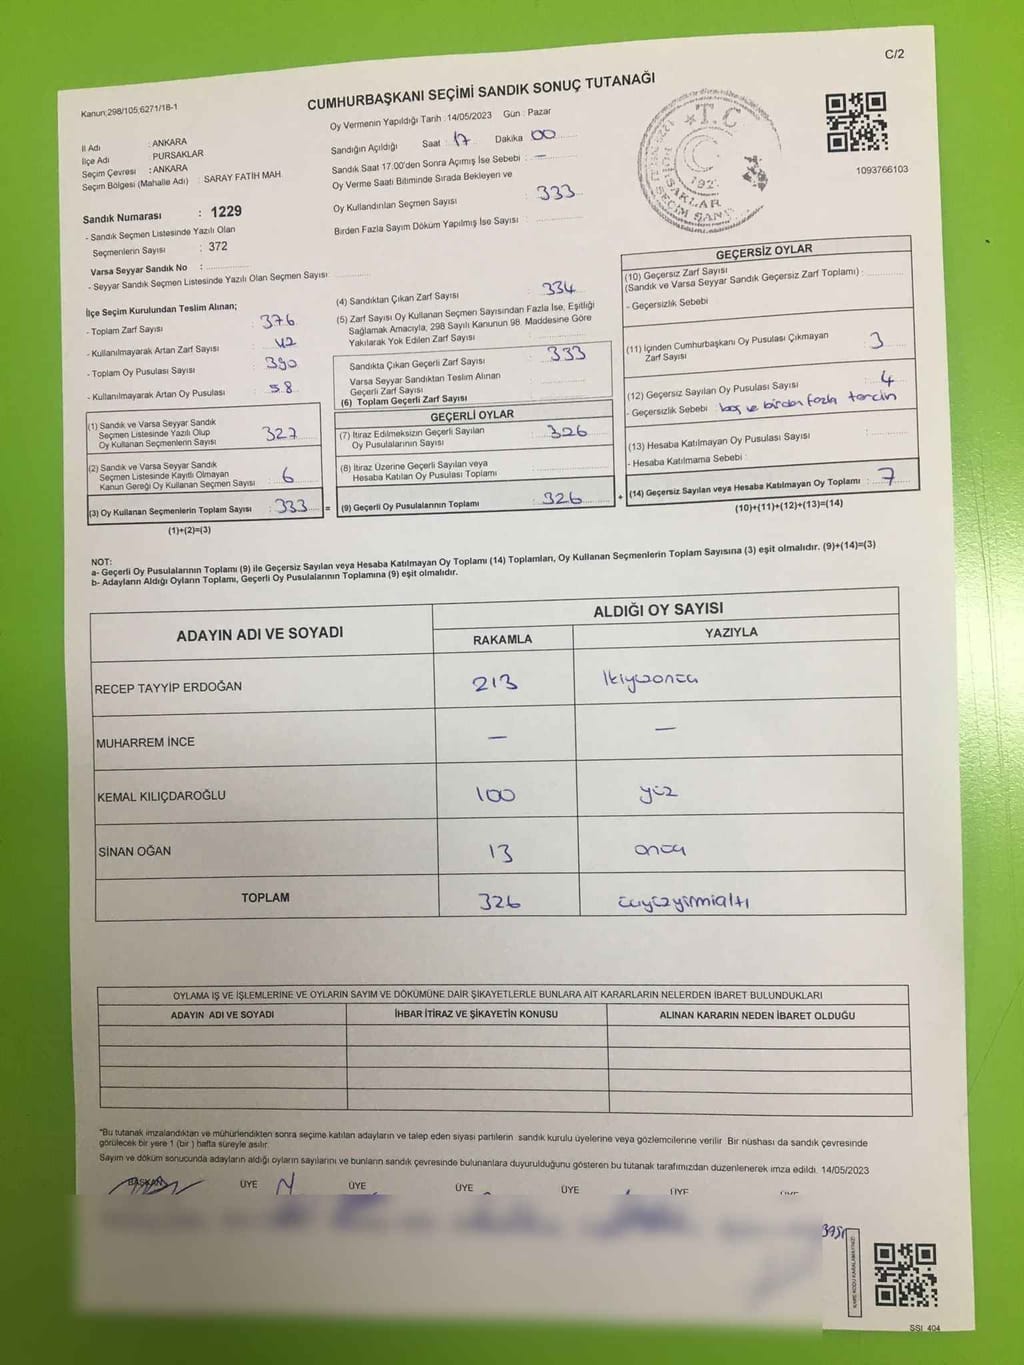 C/2
Kanun;298/105;6271/18-1
CUMHURBAŞKANI SEÇİMİ SANDIK SONUÇ TUTANAĞI
Oy Vermenin Yapıldığı Tarih : 14/05/2023 Gün : Pazar
İl Adı : ANKARA
İlçe Adı : PURSAKLAR
Seçim Çevresi : ANKARA
Seçim Bölgesi (Mahalle Adı) : SARAY FATİH MAH.
Sandığın Açıldığı Saat 17 Dakika 00
Sandık Saat 17.00'den Sonra Açımış İse Sebebi : —
Oy Verme Saati Bitiminde Sırada Bekleyen ve
Oy Kullandırılan Seçmen Sayısı : 333
Birden Fazla Sayım Döküm Yapılmış İse Sayısı :
T.C.
PURSAKLAR
1093766103
Sandık Numarası : 1229
- Sandık Seçmen Listesinde Yazılı Olan
Seçmenlerin Sayısı : 372
Varsa Seyyar Sandık No :
- Seyyar Sandık Seçmen Listesinde Yazılı Olan Seçmen Sayısı :
İlçe Seçim Kurulundan Teslim Alınan;
- Toplam Zarf Sayısı : 376
- Kullanılmayarak Artan Zarf Sayısı : 42
- Toplam Oy Pusulası Sayısı : 390
- Kullanılmayarak Artan Oy Pusulası : 58
(1) Sandık ve Varsa Seyyar Sandık
Seçmen Listesinde Yazılı Olup
Oy Kullanan Seçmenlerin Sayısı : 327
(2) Sandık ve Varsa Seyyar Sandık
Seçmen Listesinde Kayıtlı Olmayan
Kanun Gereği Oy Kullanan Seçmen Sayısı : 6
(3) Oy Kullanan Seçmenlerin Toplam Sayısı : 333 =
(1)+(2)=(3)
(4) Sandıktan Çıkan Zarf Sayısı : 334
(5) Zarf Sayısı Oy Kullanan Seçmen Sayısından Fazla İse, Eşitliği
Sağlamak Amacıyla, 298 Sayılı Kanunun 98. Maddesine Göre
Yakılarak Yok Edilen Zarf Sayısı :
Sandıkta Çıkan Geçerli Zarf Sayısı : 333
Varsa Seyyar Sandıktan Teslim Alınan
Geçerli Zarf Sayısı :
(6) Toplam Geçerli Zarf Sayısı
GEÇERLİ OYLAR
(7) İtiraz Edilmeksizin Geçerli Sayılan
Oy Pusulalarının Sayısı : 326
(8) İtiraz Üzerine Geçerli Sayılan veya
Hesaba Katılan Oy Pusulası Toplamı :
(9) Geçerli Oy Pusulalarının Toplamı : 326 +
GEÇERSİZ OYLAR
(10) Geçersiz Zarf Sayısı
(Sandık ve Varsa Seyyar Sandık Geçersiz Zarf Toplamı) :
- Geçersizlik Sebebi
(11) İçinden Cumhurbaşkanı Oy Pusulası Çıkmayan
Zarf Sayısı : 3
(12) Geçersiz Sayılan Oy Pusulası Sayısı : 4
- Geçersizlik Sebebi : boş ve birden fazla tercih
(13) Hesaba Katılmayan Oy Pusulası Sayısı :
- Hesaba Katılmama Sebebi :
(14) Geçersiz Sayılan veya Hesaba Katılmayan Oy Toplamı : 7
(10)+(11)+(12)+(13)=(14)
NOT:
a- Geçerli Oy Pusulalarının Toplamı (9) ile Geçersiz Sayılan veya Hesaba Katılmayan Oy Toplamı (14) Toplamları, Oy Kullanan Seçmenlerin Toplam Sayısına (3) eşit olmalıdır. (9)+(14)=(3)
b- Adayların Aldığı Oyların Toplamı, Geçerli Oy Pusulalarının Toplamına (9) eşit olmalıdır.
ADAYIN ADI VE SOYADI
ALDIĞI OY SAYISI
RAKAMLA YAZIYLA
RECEP TAYYİP ERDOĞAN 213 ikiyüzonüç
MUHARREM İNCE — —
KEMAL KILIÇDAROĞLU 100 yüz
SİNAN OĞAN 13 onüç
TOPLAM 326 üçyüzyirmialtı
OYLAMA İŞ VE İŞLEMLERİNE VE OYLARIN SAYIM VE DÖKÜMÜNE DAİR ŞİKAYETLERLE BUNLARA AİT KARARLARIN NELERDEN İBARET BULUNDUKLARI
ADAYIN ADI VE SOYADI İHBAR İTİRAZ VE ŞİKAYETİN KONUSU ALINAN KARARIN NEDEN İBARET OLDUĞU
*Bu tutanak imzalandıktan ve mühürlendikten sonra seçime katılan adayların ve talep eden siyasi partilerin sandık kurulu üyelerine veya gözlemcilerine verilir. Bir nüshası da sandık çevresinde
görülecek bir yere 1 (bir) hafta süreyle asılır.
Sayım ve döküm sonucunda adayların aldığı oyların sayılarını ve bunların sandık çevresinde bulunanlara duyurulduğunu gösteren bu tutanak tarafımızdan düzenlenerek imza edildi. 14/05/2023
BAŞKAN ÜYE ÜYE ÜYE ÜYE ÜYE ÜYE
KARE KODU KARALAMAYINIZ!
SSI_404